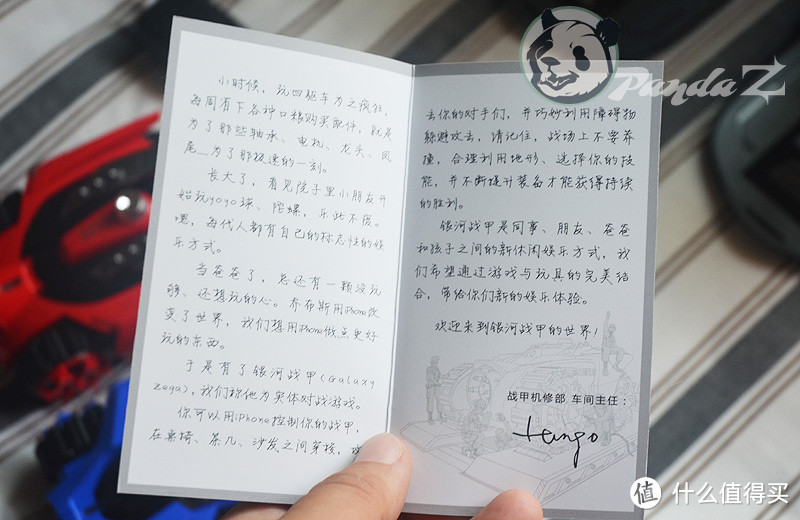 小时候，玩四驱车为之疯狂，
每周省下各种口粮购买配件，就是
为了那些轴承、电机、龙头、凤
尾__为了那极速的一刻。
长大了，看见院子里小朋友开
始玩yoyo球、陀螺，乐此不疲。
嘿，每代人都有自己的标志性的娱
乐方式。
当爸爸了，总还有一颗没玩
够、还想玩的心。乔布斯用iPhone改
变了世界，我们想用iPhone做点更好
玩的东西。
于是有了银河战甲（Galaxy
Zega），我们称他为实体对战游戏。
你可以用iPhone控制你的战甲，
在桌椅、茶几、沙发之间穿梭，攻
去你的对手们，并巧妙利用障碍物
躲避攻击，请记住，战场上不要莽
撞，合理利用地形、选择你的技
能，并不断提升装备才能获得持续
的胜利。
银河战甲是同事、朋友、爸爸
和孩子之间的新休闲娱乐方式，我
们希望通过游戏与玩具的完美结
合，带给你们新的娱乐体验。
欢迎来到银河战甲的世界！
战甲机修部 车间主任：
Panda Z
值 什么值得买